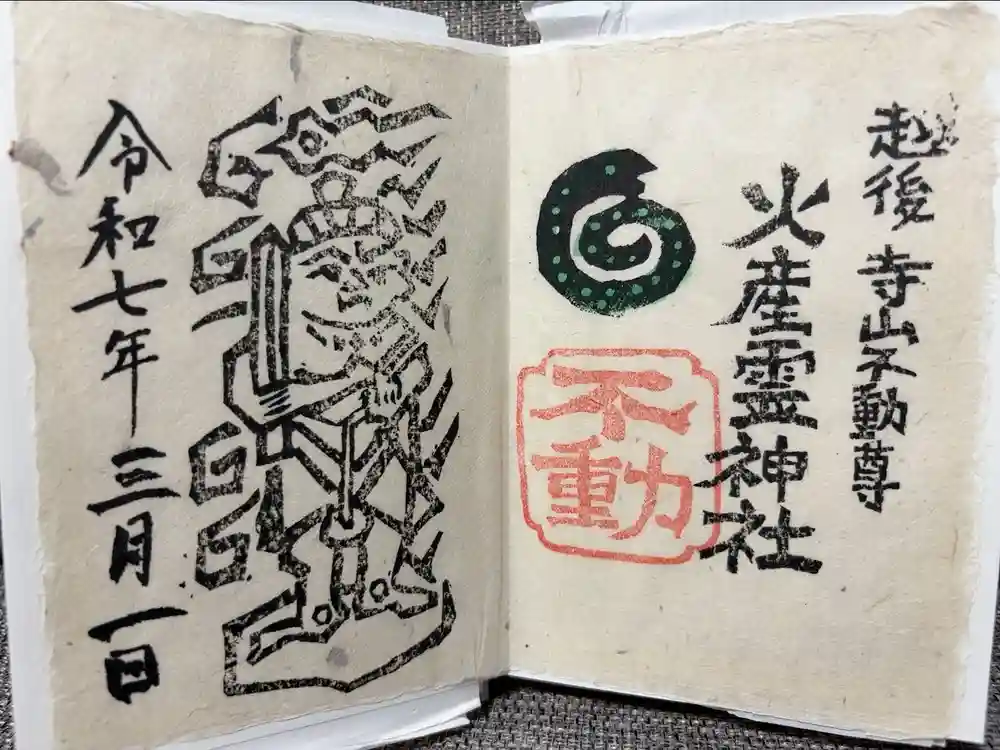 越後 寺山不動尊
火産霊神社
不動
令和七年三月一日